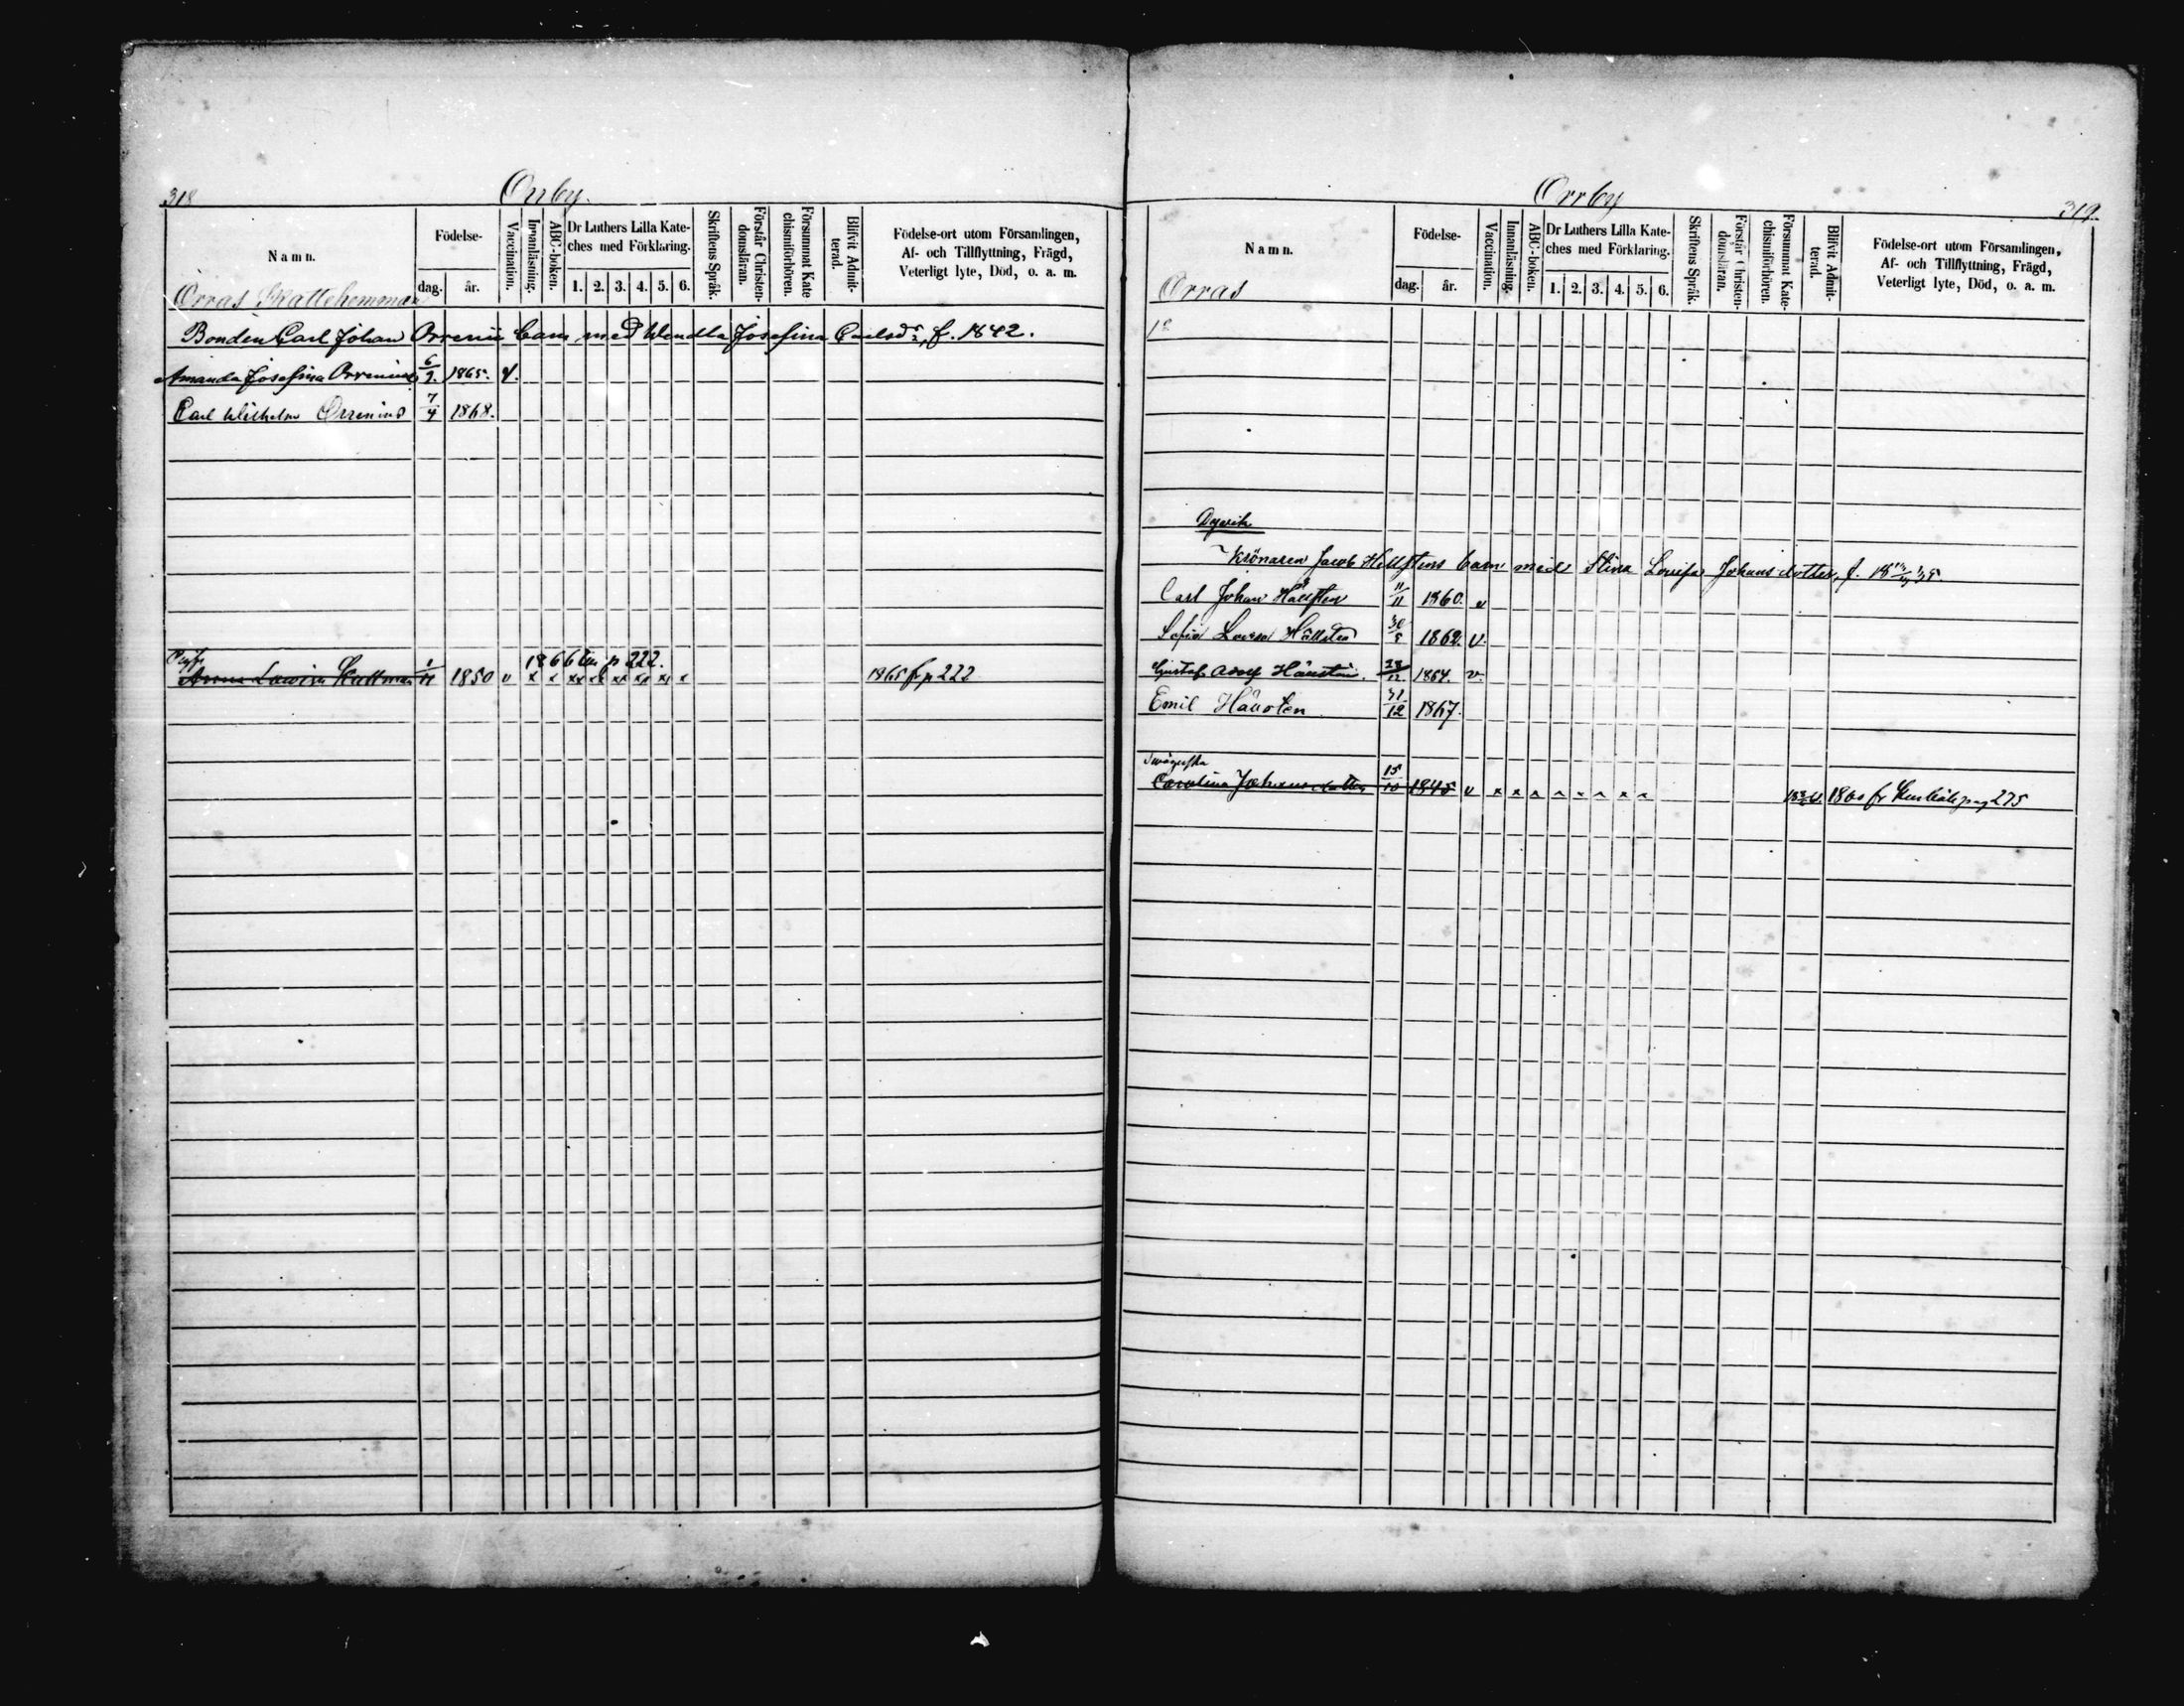 318
Orrby.
Namn.
Födelse-
dag. år.
Vaccination.
Innanläsning.
ABC-boken.
Dr Luthers Lilla Kate-
ches med Förklaring.
1. 2. 3. 4. 5. 6.
Skriftens Språk.
Förstår Christen-
domsläran.
Försummat Kate
chismiförhören.
Blifvit Admit-
terad.
Födelse-ort utom Församlingen,
Af- och Tillflyttning, Frägd,
Veterligt lyte, Död, o. a. m.
Orras Skattehemman
Bonden Carl Johan Orrenii barn med Wendla Josefina Carlsdr, f. 1842.
Amanda Josefina Orrenius 6/9 1865. v.
Carl Wilhelm Orrenius 7/4 1868.
1866 till p 222.
Anna Lovisa Skattman 1850 v x x xx xx xx xx xx x 1865 fr p 222
Orrby
319.
Namn.
Födelse-
dag. år.
Vaccination.
Innanläsning.
ABC-boken.
Dr Luthers Lilla Kate-
ches med Förklaring.
1. 2. 3. 4. 5. 6.
Skriftens Språk.
Förstår Christen-
domsläran.
Försummat Kate-
chismiförhören.
Blifvit Admit-
terad.
Födelse-ort utom Församlingen,
Af- och Tillflyttning, Frägd,
Veterligt lyte, Död, o. a. m.
Orras
Dyvik
Krönaren Jacob Hellstens barn med Stina Lovisa Johansdotter, f.
Carl Johan Hällsten 11/11 1860. v
Sofia Lovisa Hällsten 30/8 1862. v.
Gustaf Adolf Hällsten. 1864. v.
Emil Hällsten 31/12 1867.
Carolina Johansdotter 15/10 1845 v x x x x x x x x 1860 fr pag 275